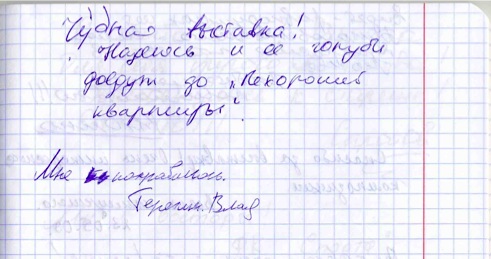 Чудная выставка!
Надеюсь и ее голуби
доедут до „Нехорошей
квартиры".
Мне понравилось.
Влад